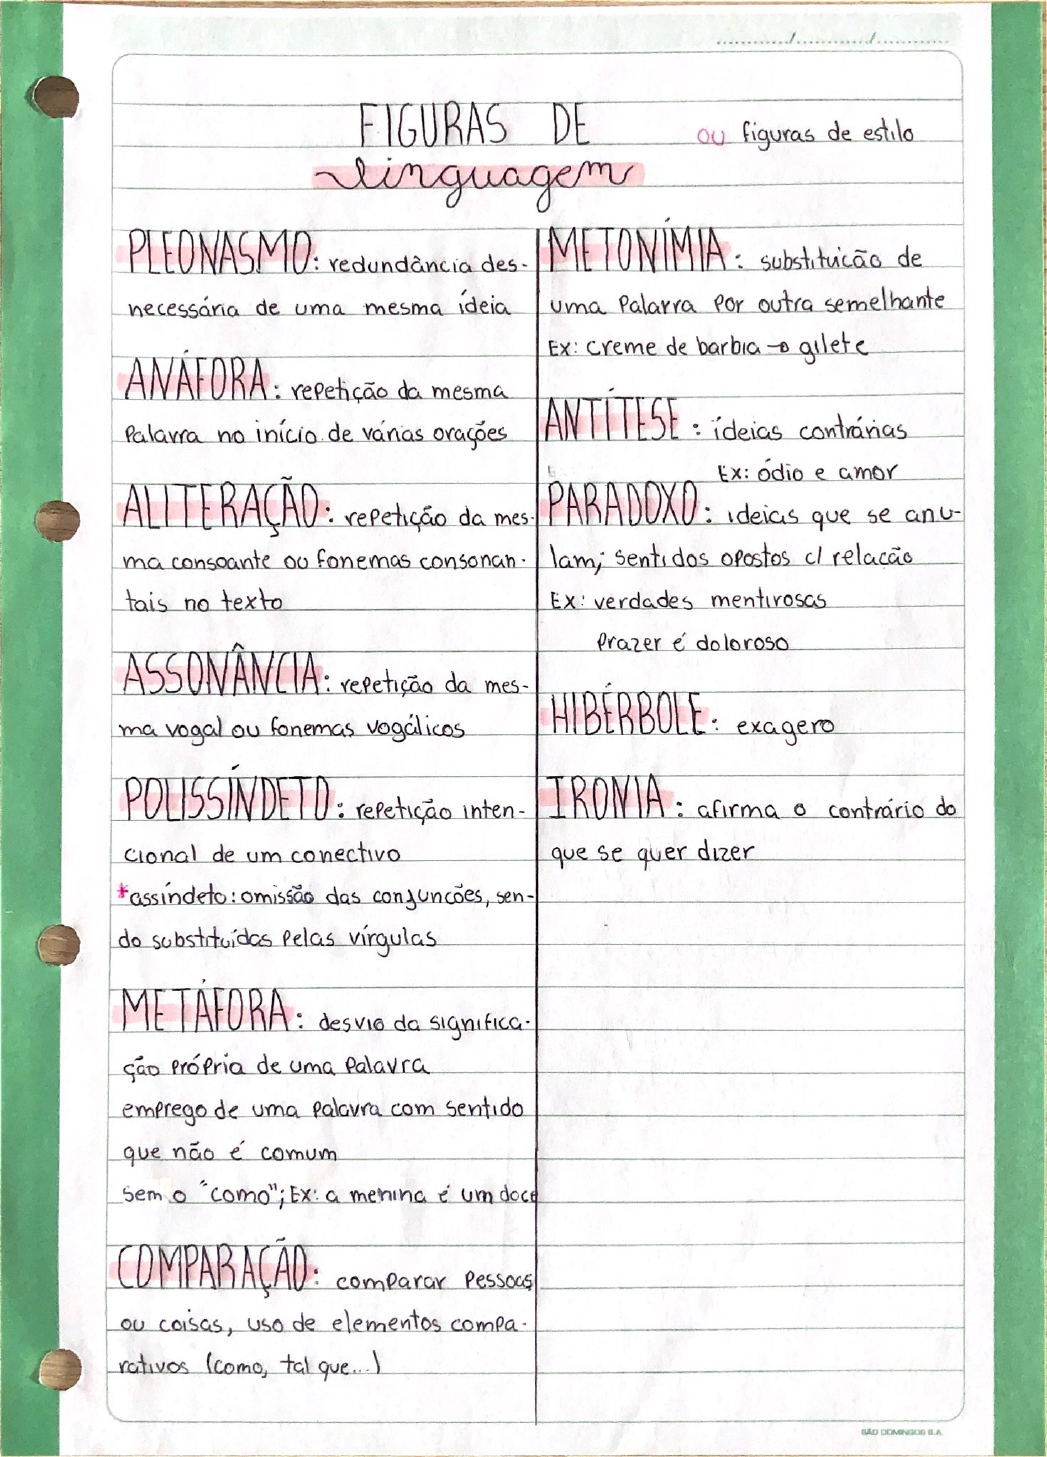 FIGURAS DE
linguagem
ou figuras de estilo
PLEONASMO: redundância des-
necessária de uma mesma ideia
ANÁFORA: repetição da mesma
Palavra no início de várias orações
ALITERAÇÃO: repetição da mes-
ma consoante ou fonemas consonan-
tais no texto
ASSONÂNCIA: repetição da mes-
ma vogal ou fonemas vogálicos
POLISSÍNDETO: repetição inten-
cional de um conectivo
*assíndeto: omissão das conjuncões, sen-
do substituídas pelas vírgulas
METÁFORA: desvio da significa-
ção própria de uma Palavra
emprego de uma palavra com sentido
que não é comum
sem o "como"; Ex: a menina é um doce
COMPARAÇÃO: comparar pessoas
ou coisas, uso de elementos compa-
rativos (como, tal que...)
METONÍMIA: substituicão de
uma Palavra Por outra semelhante
Ex: creme de barbia → gilete
ANTÍTESE: ídeias contrárias
Ex: ódio e amor
PARADOXO: ideias que se anu-
lam; sentidos opostos c/ relacão
Ex: verdades mentirosas
Prazer é doloroso
HIBÉRBOLE: exagero
IRONIA: afirma o contrário do
que se quer dizer
SÃO DOMINGOS S.A.